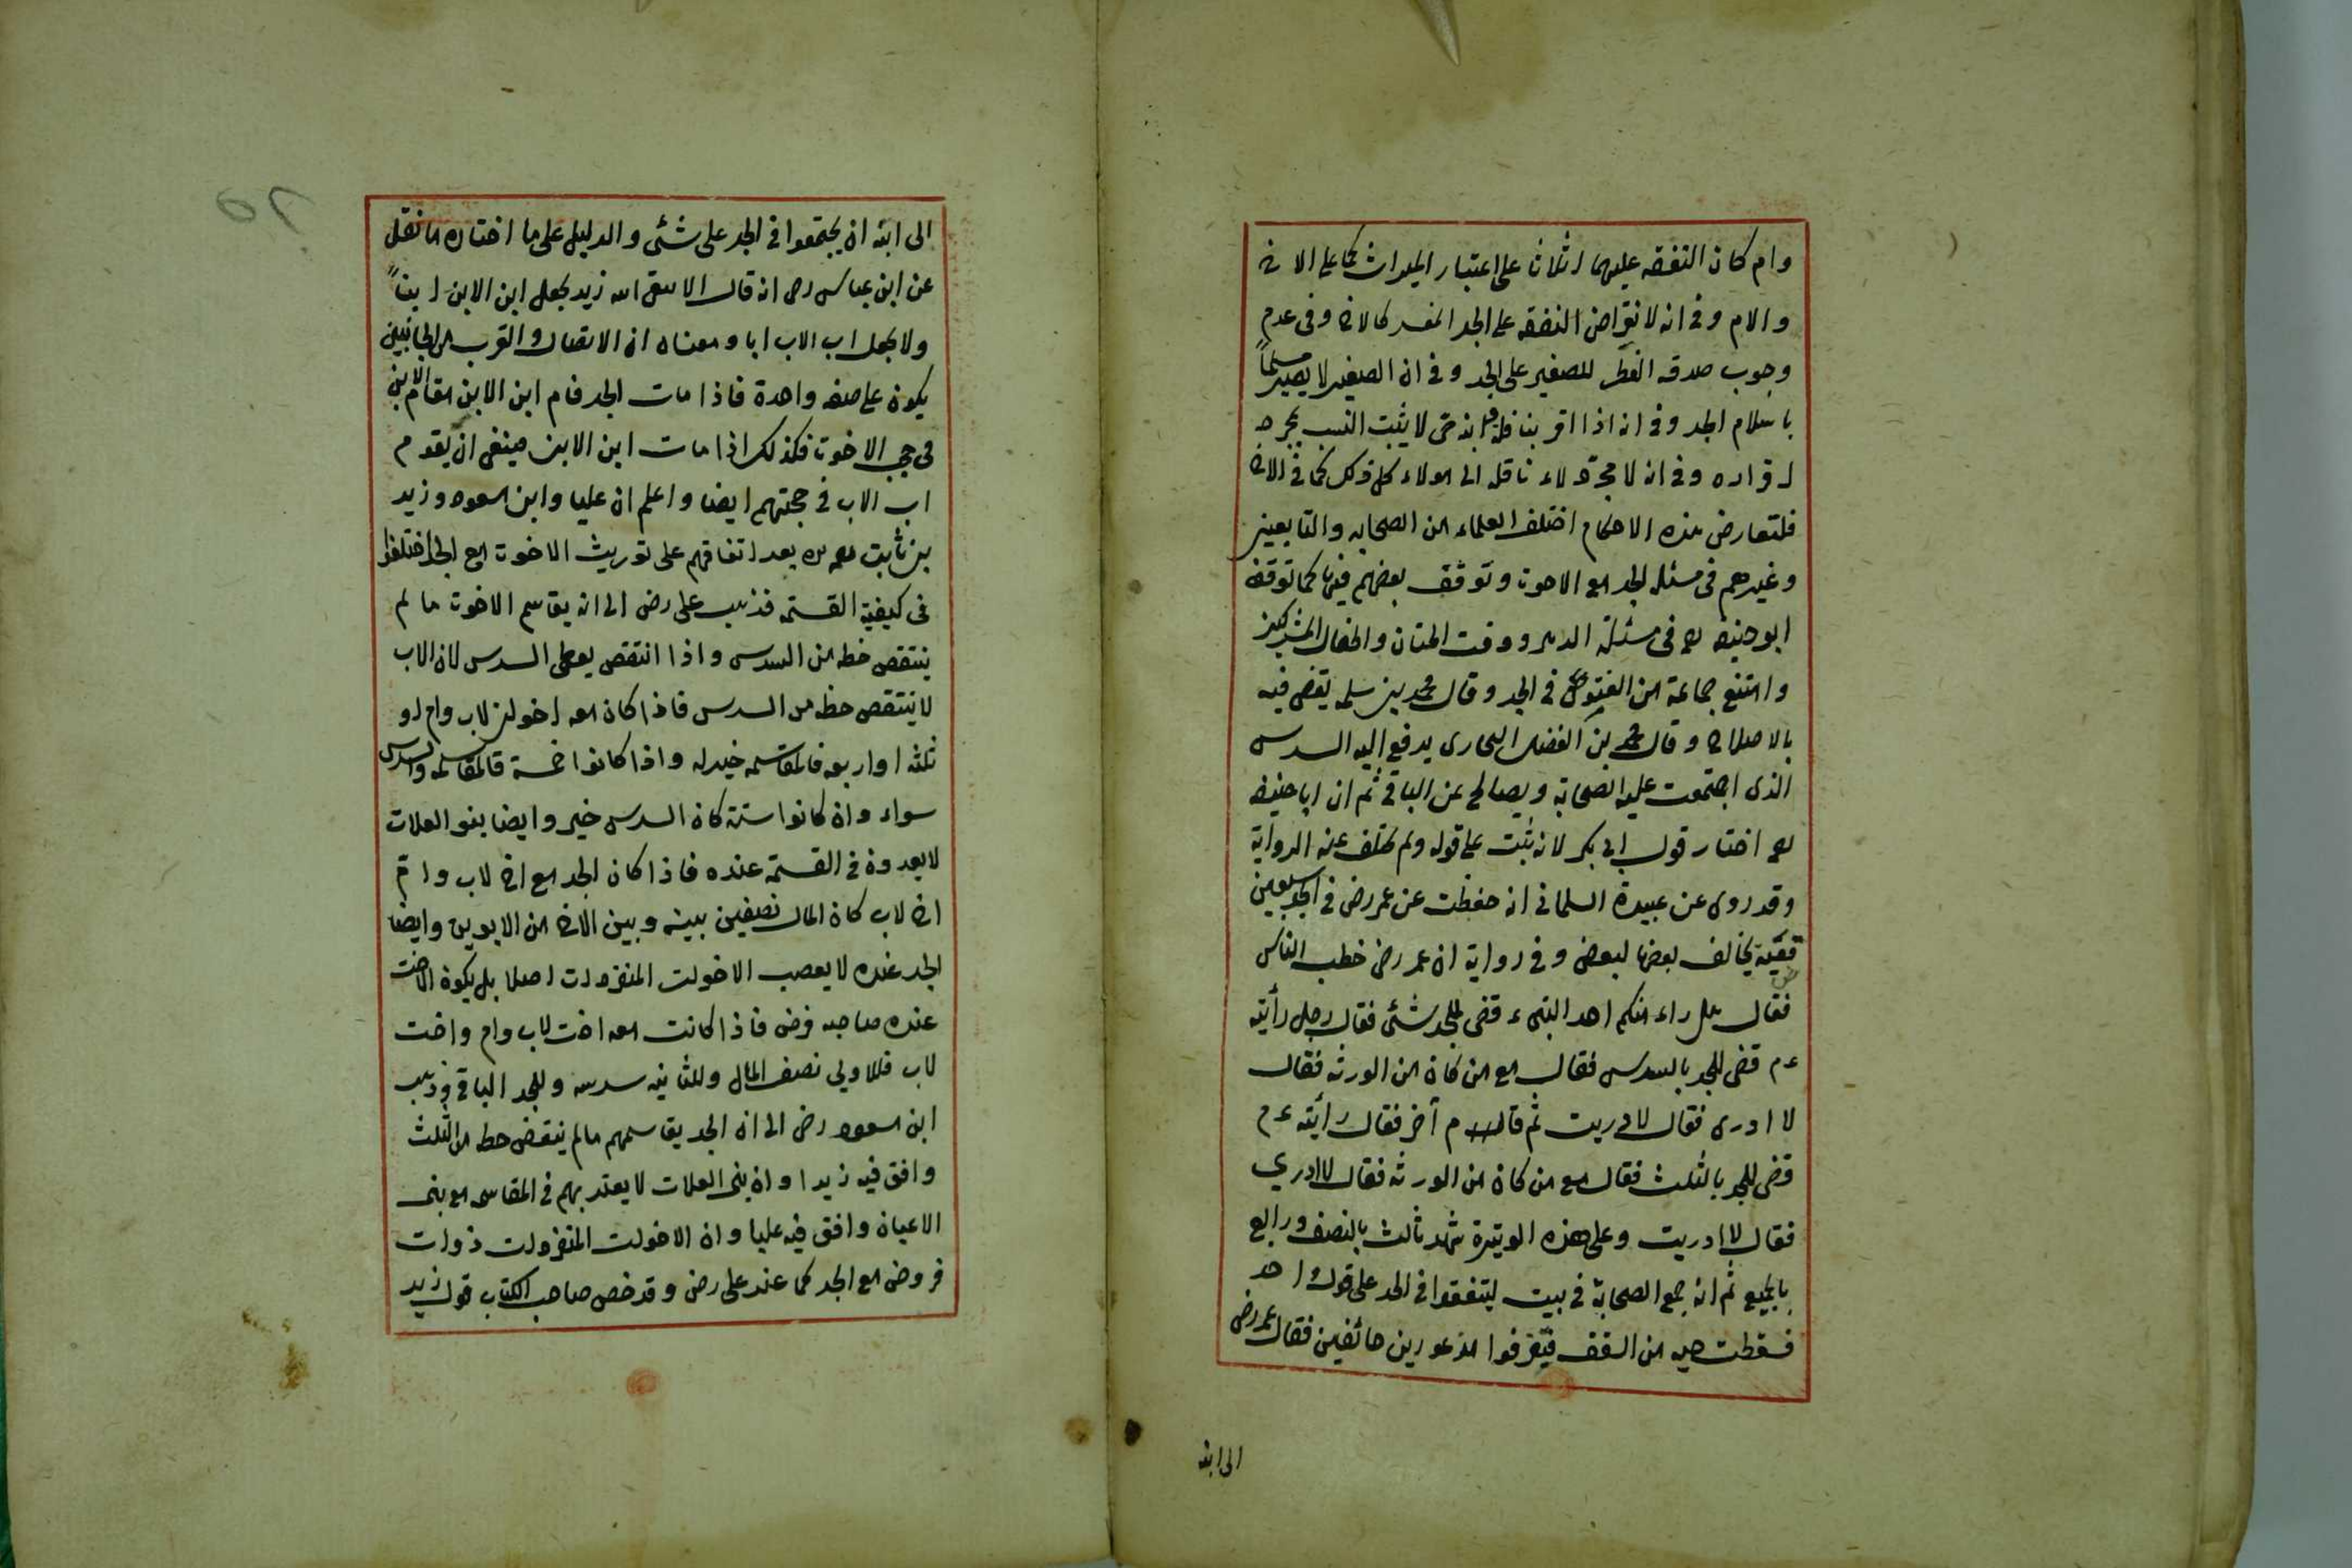 وام كان النفقه عليهما اثلاثا على اعتبار الميراث كما على الاخ
والام وفى انه لا نقراض النفقه على الجد المعسر كالاخ وفى عدم
وجوب صدقه الفطر للصغير على الجد وفى ان الصغير لا يصير مسلماً
باسلام الجد وفى انه اذا اقر بنافلة وابنه حى لا يثبت النسب بمجرد
اقراره وفى ان لا مجرّد ولاء نافلة الى مولاء كل ذلك كما فى الاخ
فلتعارض هذه الاحكام اختلف العلماء من الصحابه والتابعين
وغيرهم فى مسئله الجد مع الاخوت وتوقف بعضهم فيها كما توقف
ابو حنيفه رح فى مسئلة الدهر ووقت الختان واطفال المشركين
وامتنع جماعة من الفتوى فى الجد وقال محمد بن سلمه يقضى فيه
بالاصلاح وقال محمد بن الفضل البخارى يدفع اليه السدس
الذى اجتمعت عليه الصحابة ويصالح عن الباقى ثم ان ابا حنيفه
رح اختار قول ابى بكر لانه ثبت على قوله ولم يختلف عنه الرواية
وقد روى عن عبيدة السلمانى انه حفظت عن عمر رض فى الجد سبعين
قضيّة يخالف بعضها لبعض وفى رواية ان عمر رض خطب الناس
فقال هل راء منكم احد النبىء قضى للجد شئى فقال رجل رأيته
عم قضى للجد بالسدس فقال مع من كان من الورثه فقال
لا ادرى فقال لا دريت ثم قام آخر فقال رأيته عم
قضى للجد بالثلث فقال مع من كان من الورثه فقال لا ادري
فقال لا ادريت وعلى هذه الوتيرة شهد ثالث بالنصف ورابع
بالجميع ثم انه جمع الصحابة فى بيت ليتفقوا فى الجد على قول واحد
فسقطت حيه من السقف فتفرقوا مذعورين خائفين فقال عمر رض
الى ابنه
الى ابنه ان يجتمعوا فى الجد على شئى والدليل على ما اختاره ما نقل
عن ابن عباس رض انه قال الا يتقى الله زيد يجعل ابن الابن ابناً
ولا يجعل اب الاب ابا ومعناه ان الاتصال والقرب من الجانبين
يكون على صفه واحدة فاذا مات الجد قام ابن الابن مقام الابن
فى حجب الاخوت فكذلك اذا مات ابن الابن فينبغى ان يقوم
اب الاب فى حجبتهم ايضا واعلم ان عليا وابن مسعود وزيد
بن ثابت بعد اتفاقهم على توريث الاخوت مع الجد اختلفوا
فى كيفية القسمة فذهب على رض الى انه يقاسم الاخوت ما لم
ينتقص حظه من السدس واذا انتقص يعطى السدس لان الاب
لا ينتقص حظه من السدس فاذا كان معه اخوان لاب وام او
ثلثه او اربعه فالمقاسمه خير له واذا كانوا خمسة فالمقاسمه والسدس
سواء وان كانوا ستة كان السدس خير وايضا بنو العلات
لا يعدون فى القسمة عنده فاذا كان الجد مع اخ لاب وامّ
اخ لاب كان المال نصفين بينه وبين الاخ من الابوين وايضا
الجد عنده لا يعصب الاخوات المنفردات اصلا بل يكون الاخت
عنده صاحبه فرض فاذا كانت معه اخت لاب وام واخت
لاب فللاولى نصف المال وللثانيه سدسه وللجد الباقى وذهب
ابن مسعود رض الى ان الجد يقاسمهم مالم ينتقص حظه من الثلث
وافق فيه زيدا وان بنى العلات لا يعتد بهم فى المقاسمه مع بنى
الاعيان وافق فيه عليا وان الاخوات المنفردات ذوات
فروض مع الجد كما عند على رض وقد خص صاحب الكتاب قول زيد